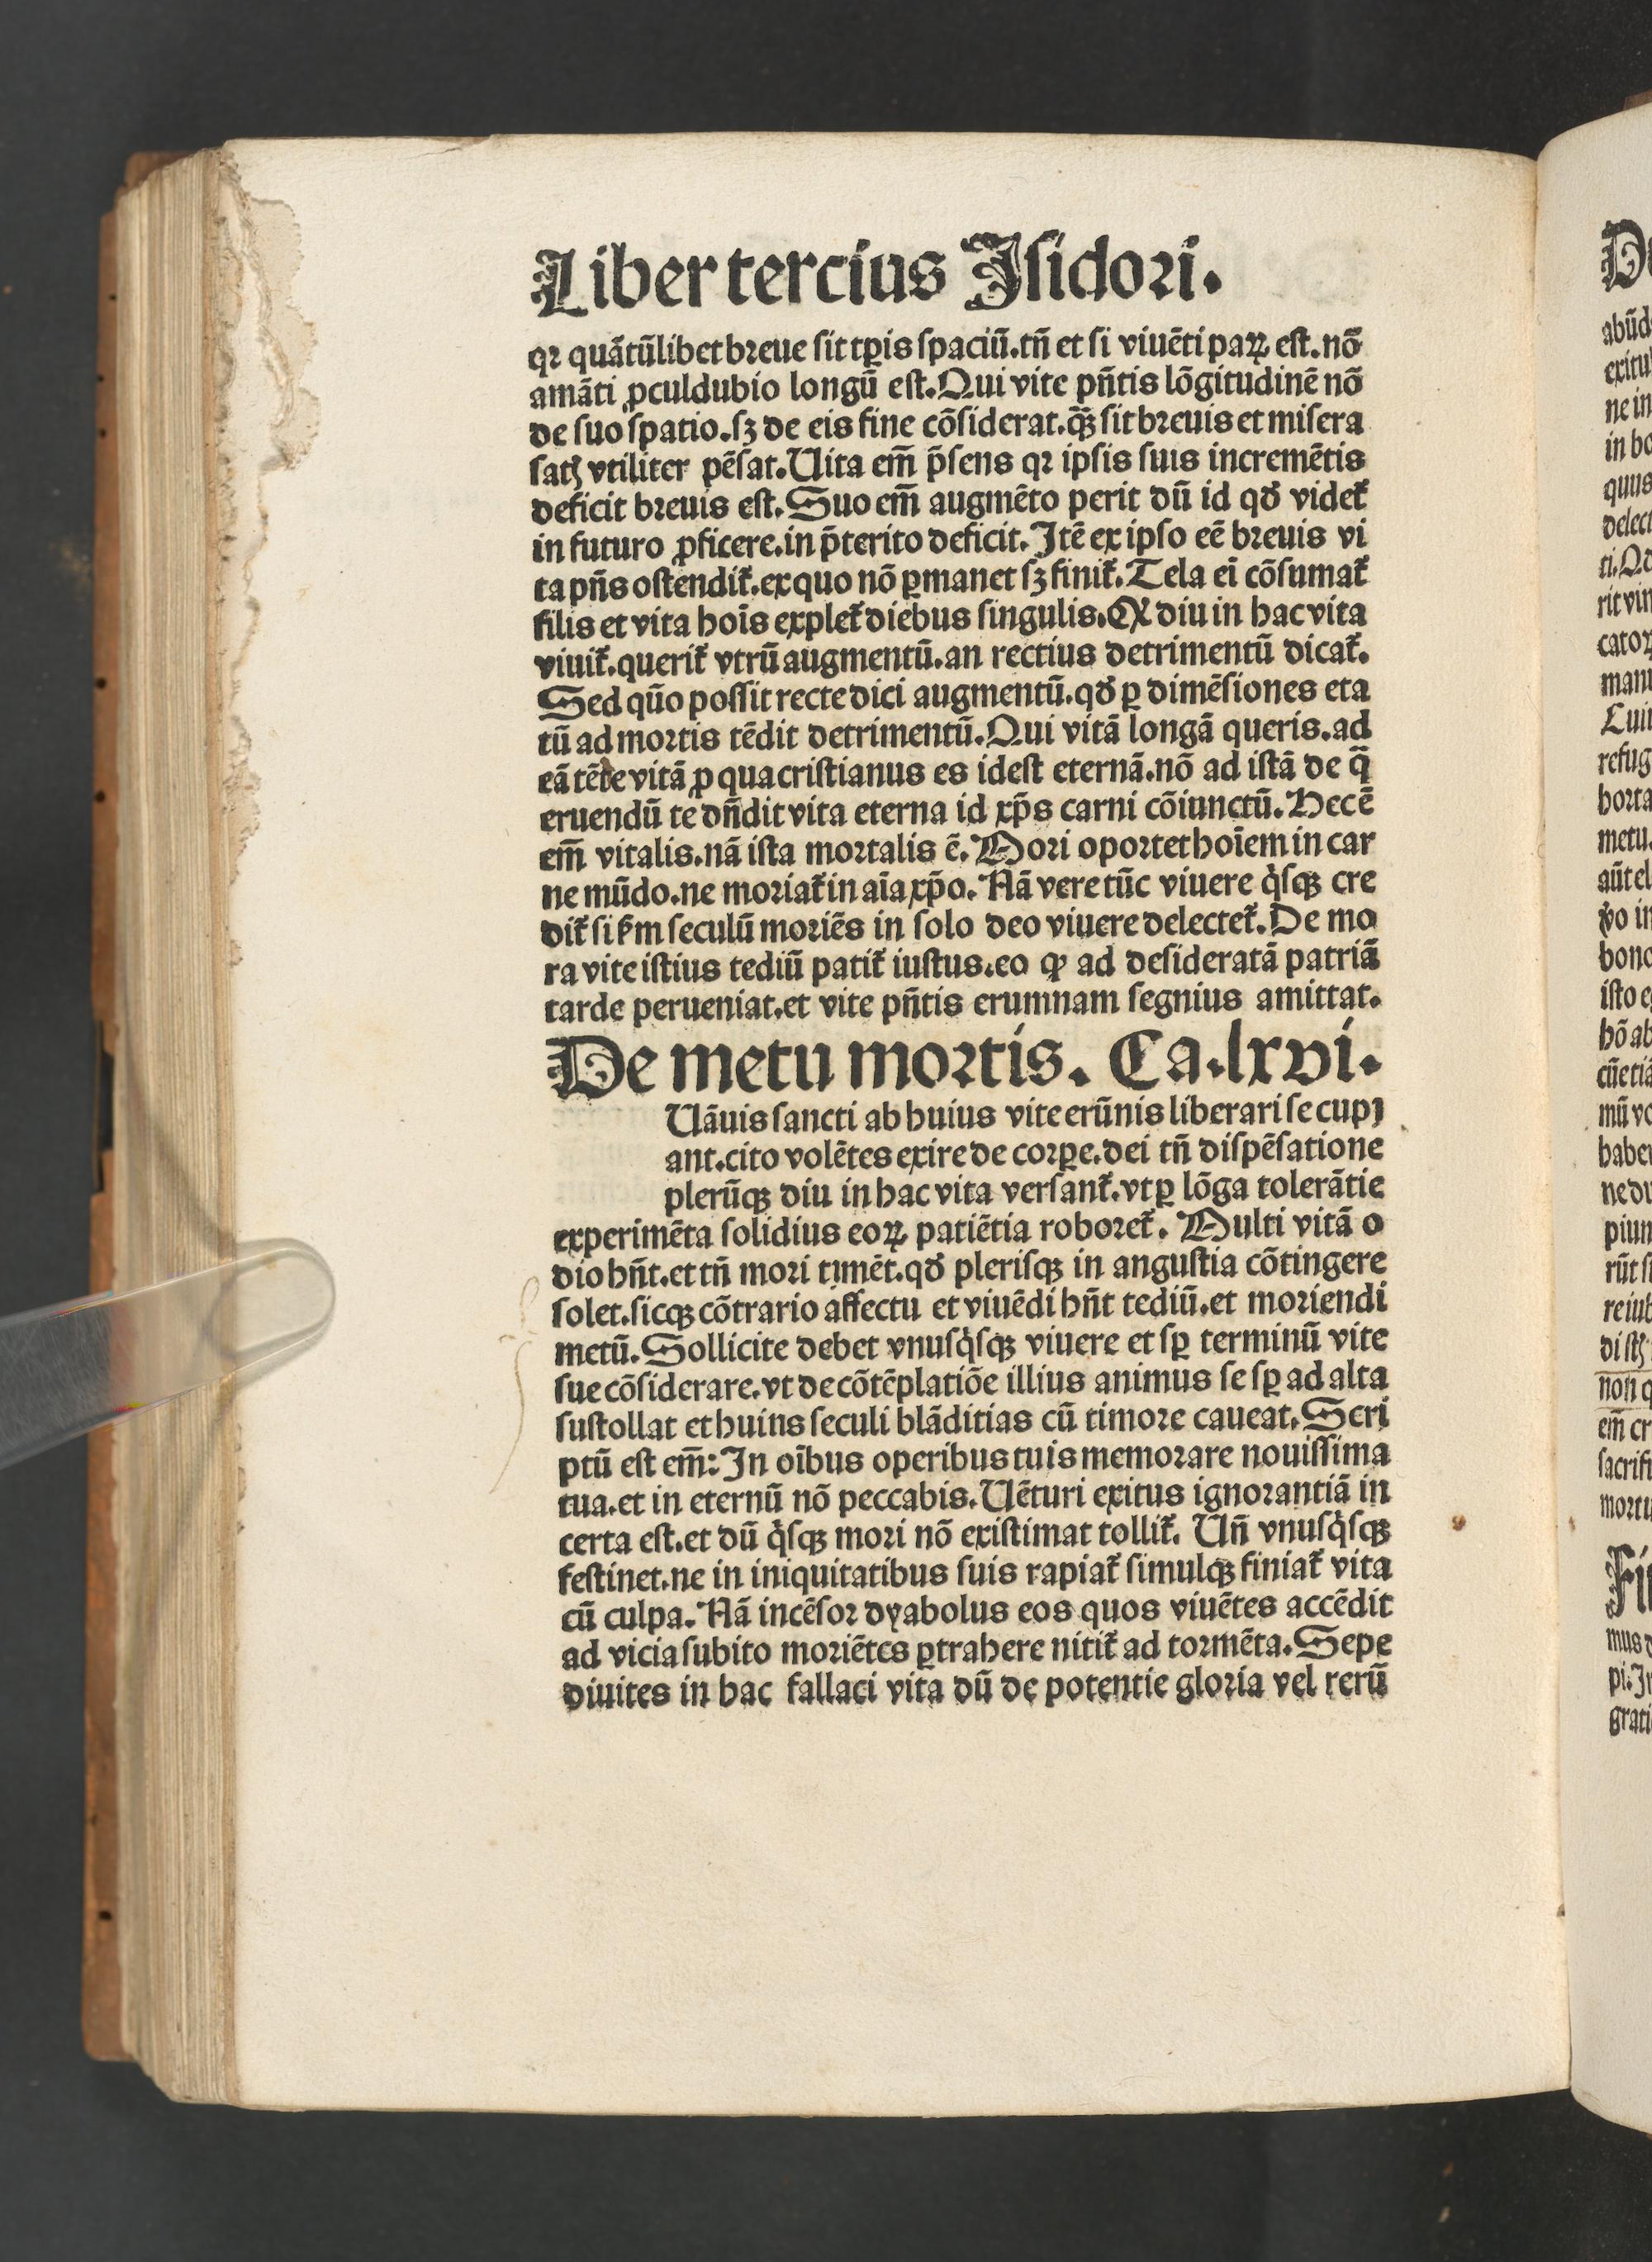 Liber tercius Isidori.
qꝛ quãtũlibet bꝛeue ſit tp̱is ſpaciũ.tñ et ſi viuẽti paꝝ eſt.nõ
amãti ꝓculdubio longũ eſt.Qui vite pñtis lõgitudinẽ nõ
de ſuo ſpatio.ſꝫ de eis fine cõſiderat.q̃ꝫ ſit bꝛeuis et miſera
ſatꝭ vtiliter pẽſat.Uita em̃ p̃ſens qꝛ ipſis ſuis incremẽtis
deficit bꝛeuis eſt.Suo em̃ augmẽto perit dũ id qđ videt̃
in futuro ꝓficere.in p̃terito deficit.Itẽ ex ipſo eẽ bꝛeuis vi
ta pñs oſtendit̃.ex quo nõ ꝑmanet ſꝫ finit̃.Tela ei̇̃ cõſumat̃
filis et vita hoĩs explet̃ diebus ſingulis.Qꝛ diu in hac vita
viuit̃.querit̃ vtrũ augmentũ.an rectius detrimentũ dicat̃.
Sed qũo poſſit recte dici augmentũ.qđ ꝑ dimẽſiones eta
tũ ad moꝛtis tẽdit detrimentũ.Qui vitã longã queris.ad
eã tẽde vitã ꝓ qua criſtianus es ideſt eternã.nõ ad iſtã de q̃
eruendũ te dñdit vita eterna id xp̃s carni cõiunctũ.Hec ẽ
em̃ vitalis.nã iſta moꝛtalis ẽ.Moꝛi opoꝛtet hoĩem in car
ne mũdo.ne moꝛiat̃ in aĩa xp̃o.Nã vere tũc viuere q̇ſqꝫ cre
dit̃ ſi ẜm ſeculũ moꝛiẽs in ſolo deo viuere delectet̃.De mo
ra vite iſtius tediũ patit̃ iuſtus.eo ꝙ ad deſideratã patriã
tarde perueniat.et vite pñtis erumnam ſegnius amittat.
De metu moꝛtis. Ca.lxvi.
Uãuis ſancti ab huius vite erũnis liberari ſe cupı
ant.cito volẽtes exire de coꝛꝑe.dei tñ diſpẽſatione
plerũqꝫ diu in hac vita verſant̃.vt ꝑ lõga tolerãtie
experimẽta ſolidius eoꝝ patiẽtia roboꝛet̃. Multi vitã o
dio hñt.et tñ moꝛi timẽt.qđ pleriſqꝫ in anguſtia cõtingere
ſolet.ſicqꝫ cõtrario affectu et viuẽdi hñt tediũ.et moꝛiendi
metũ.Sollicite debet vnuſq̇ſqꝫ viuere et ſꝑ terminũ vite
ſue cõſiderare.vt de cõtẽplatiõe illius animus ſe ſꝑ ad alta
ſuſtollat et huins ſeculi blãditias cũ timoꝛe caueat.Scri
ptũ eſt em̃:In oĩbus operibus tuis memoꝛare nouiſſima
tua.et in eternũ nõ peccabis.Uẽturi exitus ignoꝛantiã in
certa eſt.et dũ q̇ſqꝫ moꝛi nõ exiſtimat tollit̃. Uñ vnuſq̇ſqꝫ
feſtinet.ne in iniquitatibus ſuis rapiat̃ ſimulqꝫ finiat̃ vita
cũ culpa.Nã incẽſoꝛ dyabolus eos quos viuẽtes accẽdit
ad vicia ſubito moꝛiẽtes ꝑtrahere nitit̃ ad toꝛmẽta.Sepe
diuites in hac fallaci vita dũ de potentie gloꝛia vel rerũ